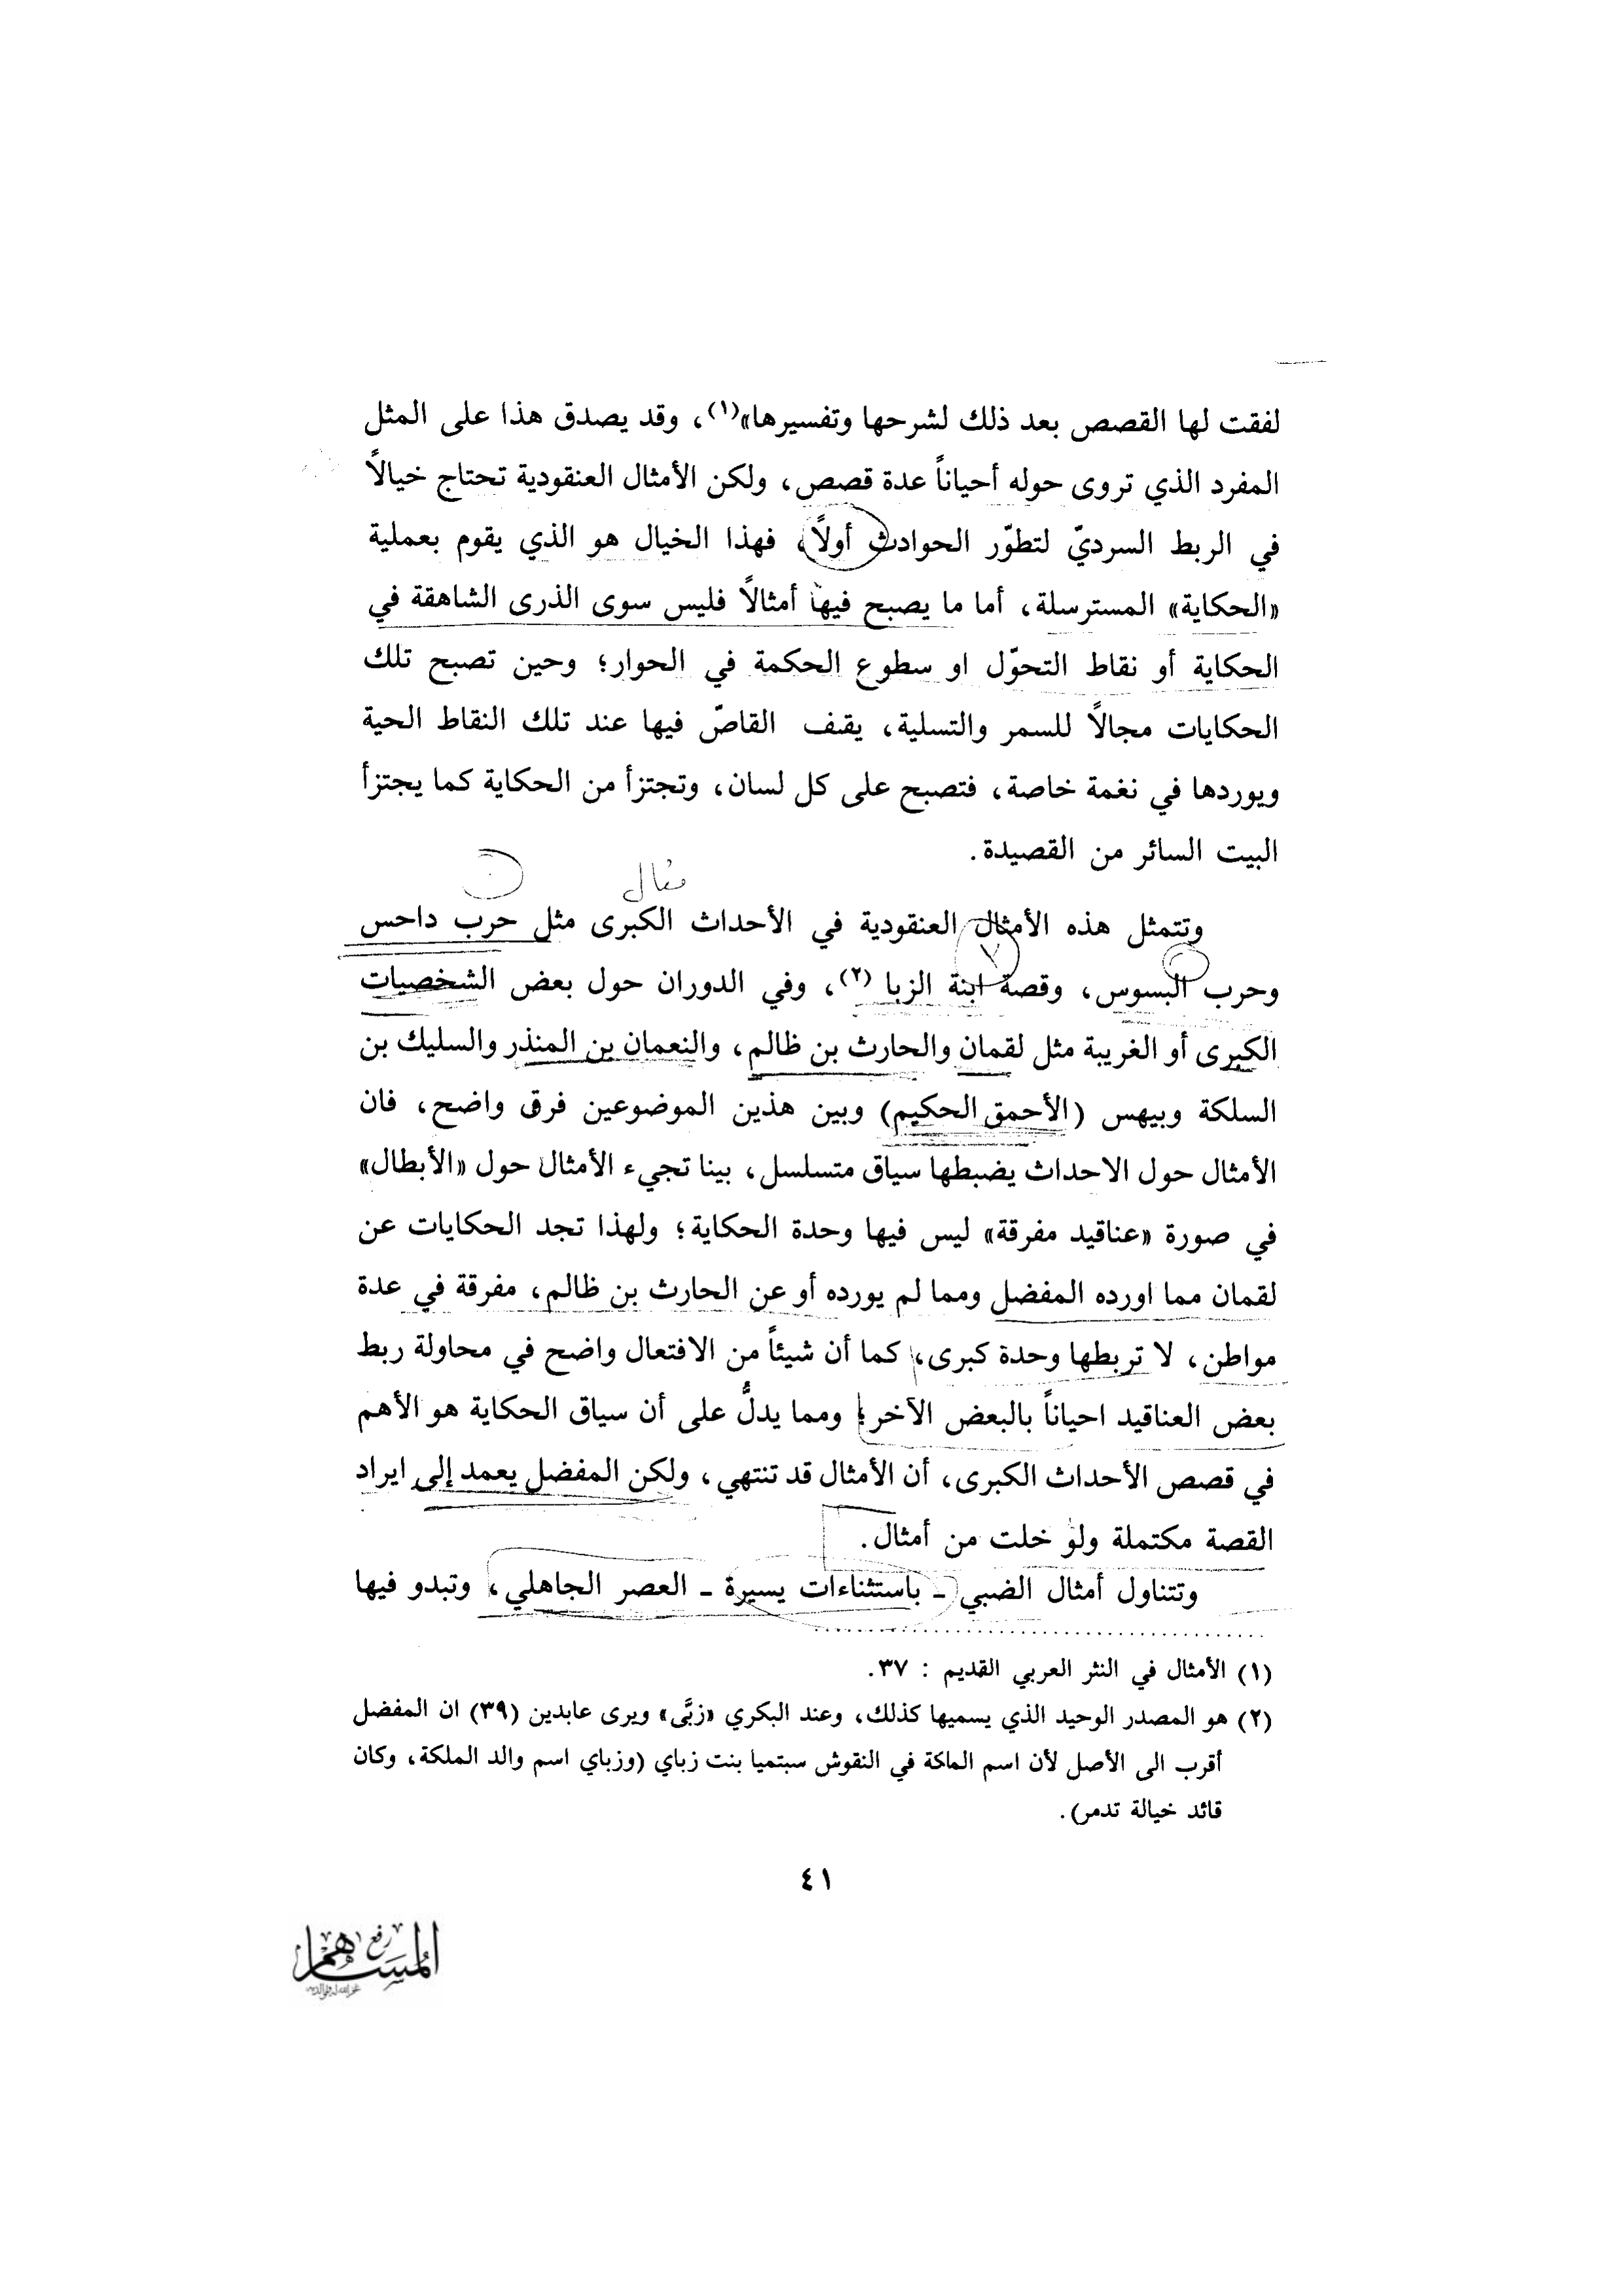 لفقت لها القصص بعد ذلك لشرحها وتفسيرها»(١)، وقد يصدق هذا على المثل
المفرد الذي تروى حوله أحياناً عدة قصص، ولكن الأمثال العنقودية تحتاج خيالاً
في الربط السرديّ لتطوّر الحوادث أولاً، فهذا الخيال هو الذي يقوم بعملية
«الحكاية» المسترسلة، أما ما يصبح فيها أمثالاً فليس سوى الذرى الشاهقة في
الحكاية أو نقاط التحوّل او سطوع الحكمة في الحوار؛ وحين تصبح تلك
الحكايات مجالاً للسمر والتسلية، يقف القاصّ فيها عند تلك النقاط الحية
ويوردها في نغمة خاصة، فتصبح على كل لسان، وتجتزأ من الحكاية كما يجتزأ
البيت السائر من القصيدة.
مثال
وتتمثل هذه الأمثال العنقودية في الأحداث الكبرى مثل حرب داحس
وحرب البسوس، وقصة ابنة الزبا (٢)، وفي الدوران حول بعض الشخصيات
الكبرى أو الغريبة مثل لقمان والحارث بن ظالم، والنعمان بن المنذر والسليك بن
السلكة وبيهس (الأحمق الحكيم) وبين هذين الموضوعين فرق واضح، فان
الأمثال حول الاحداث يضبطها سياق متسلسل، بينا تجيء الأمثال حول «الأبطال»
في صورة «عناقيد مفرقة» ليس فيها وحدة الحكاية؛ ولهذا تجد الحكايات عن
لقمان مما اورده المفضل ومما لم يورده أو عن الحارث بن ظالم، مفرقة في عدة
مواطن، لا تربطها وحدة كبرى، كما أن شيئاً من الافتعال واضح في محاولة ربط
بعض العناقيد احياناً بالبعض الآخر؛ ومما يدلُّ على أن سياق الحكاية هو الأهم
في قصص الأحداث الكبرى، أن الأمثال قد تنتهي، ولكن المفضل يعمد إلى ايراد
القصة مكتملة ولو خلت من أمثال.
وتتناول أمثال الضبي ـ باستثناءات يسيرة ـ العصر الجاهلي، وتبدو فيها
(١) الأمثال في النثر العربي القديم : ٣٧.
(٢) هو المصدر الوحيد الذي يسميها كذلك، وعند البكري «زبَّى» ويرى عابدين (٣٩) ان المفضل
أقرب الى الأصل لأن اسم الملكة في النقوش سبتميا بنت زباي (وزباي اسم والد الملكة، وكان
قائد خيالة تدمر).
٤١
رفع
المساهم